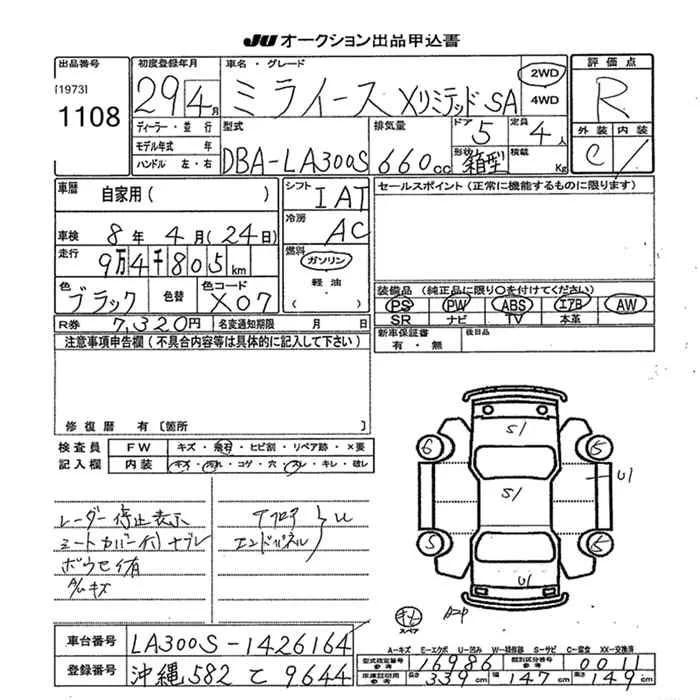 JU オークション出品申込書
出品番号
[1973]
1108
初度登録年月
29 4月
ディーラー・並行
モデル年式 年
ハンドル 左・右
車名・グレード
ミライース Xリミテッド SA
2WD
4WD
型式
DBA-LA300S
排気量
660cc
ドア
5
定員
4人
形状
箱型
積載
Kg
評価点
R
外装 内装
C
車歴
自家用( )
車検 8年 4月(24日)
走行 9万4千805km
色
ブラック
色替
色コード
X07
シフト
IAT
冷房
AC
燃料
ガソリン
軽油
( )
セールスポイント(正常に機能するものに限ります)
装備品 (純正品に限り〇を付けてください)
PS PW ABS エアB AW
SR ナビ TV 本革
新車保証書
有・無
後日品
R券 7,320円 名変通知期限 月 日
注意事項申告欄(不具合内容等は具体的に記入して下さい)
修復歴 有〔箇所 〕
検査員
記入欄
FW キズ・飛石・ヒビ割・リペア跡・×要
内装 キズ・汚れ・コゲ・穴・スレ・キレ・破レ
レーダー停止表示
シートカバー付
A/Wキズ
エンドパネル
U
S1
S1
U1
U1
6
5
5
5
スペア
A-キズ E-エクボ U-凹み W-補修跡 S-サビ C-腐食 XX-交換済
車台番号 LA300S-1426164
登録番号 沖縄 582 て 9644
型式指定番号 参考 16986 類別区分番号 参考 0011
長さ 339cm 幅 147cm 高さ 149cm